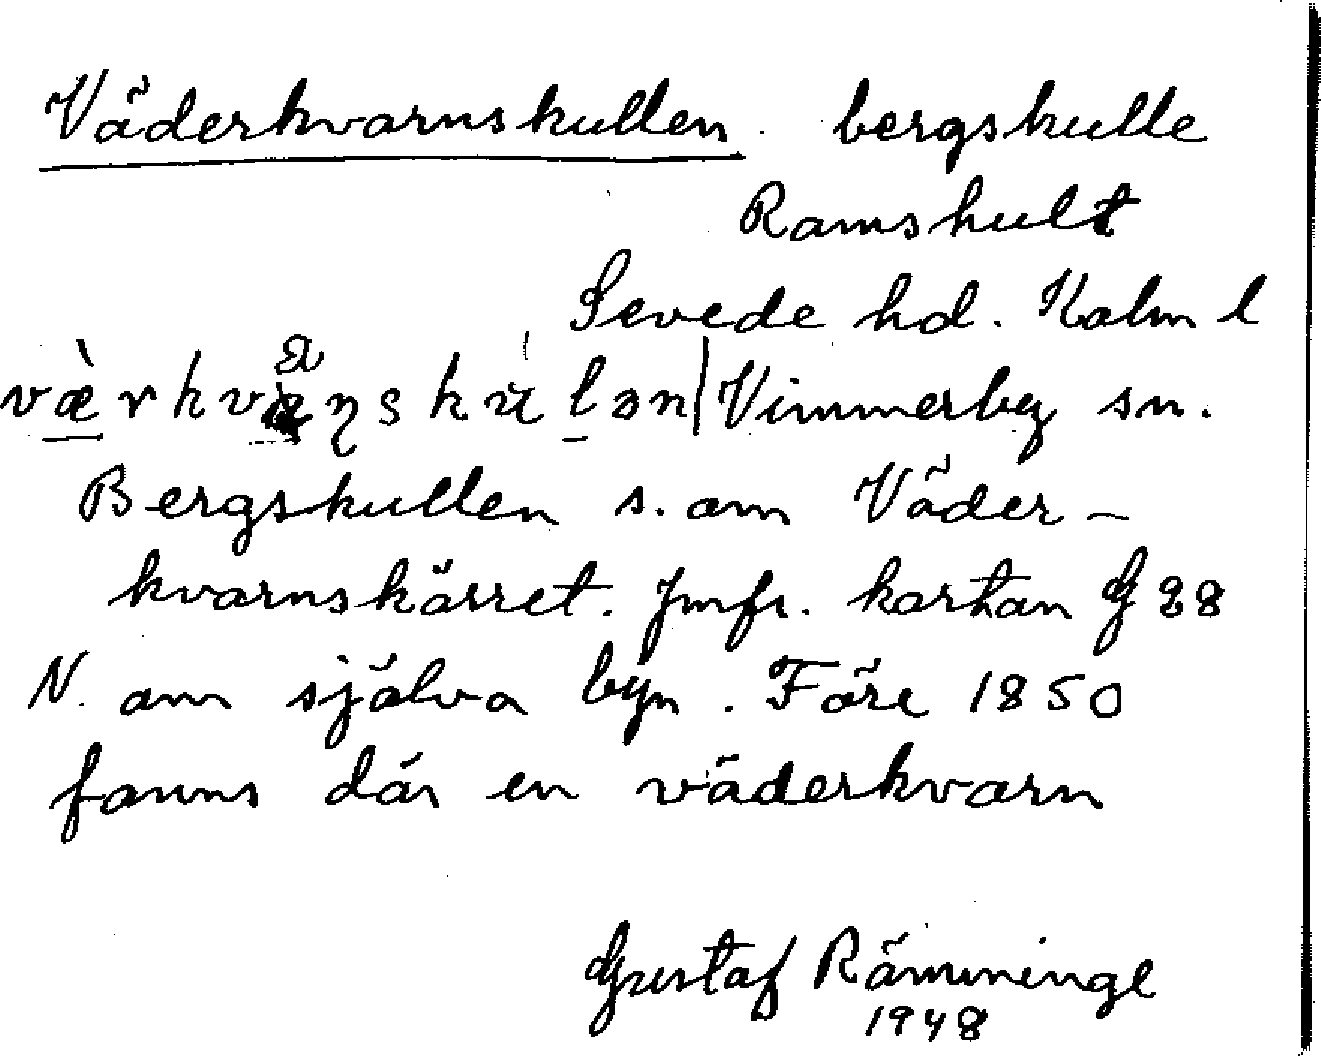 Väderkvarnskullen. bergskulle
Ramshult
Sevede hd. Kalm l
Vimmerby sn.
Bergskullen s. om Väder-
kvarnskärret. Jmfr. kartan G 28
N. om själva byn. Före 1850
fanns där en väderkvarn
Gustaf Rämminge
1948